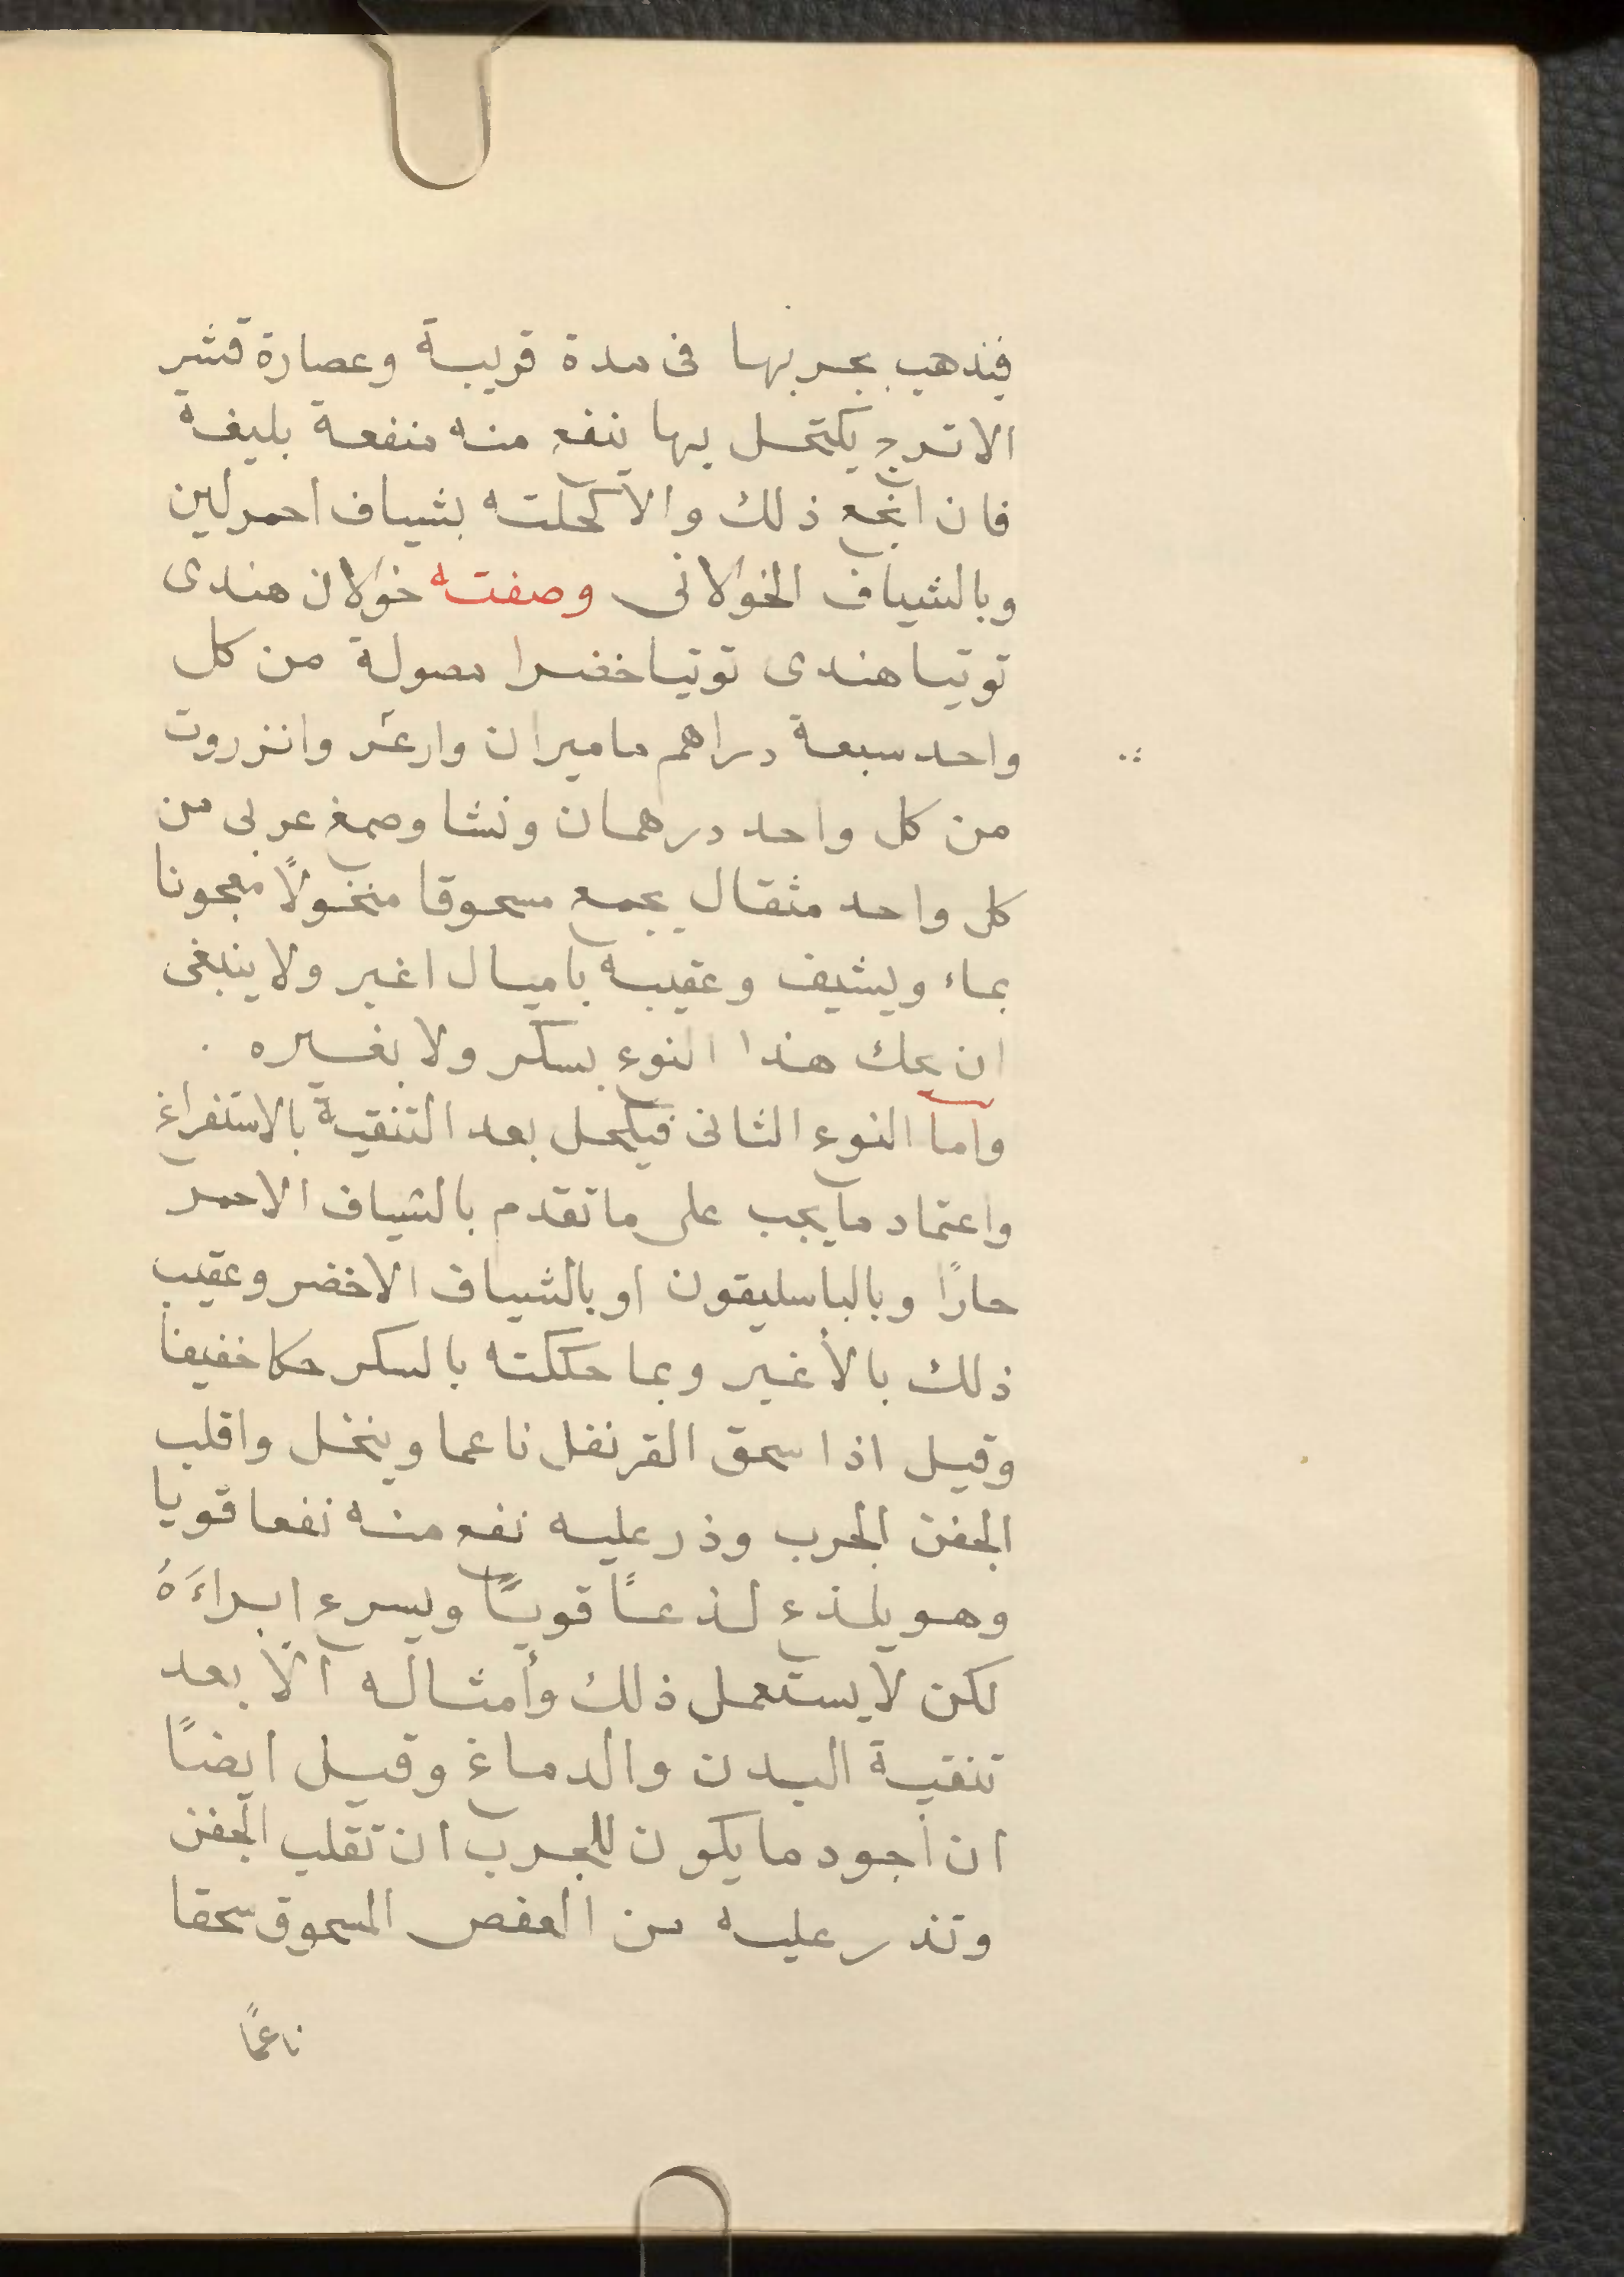 فيذهب بجربها فى مدة قريبة وعصارة قشر
الاترج يكتحل بها ينفع منه منفعة بليغة
فان انجع ذلك والا كحلته بشياف احمر لين
وبالشياف الخولانى وصفته خولان هندى
توتيا هندى توتيا خضرا مصولة من كل
واحد سبعة دراهم ماميران وانزروت
من كل واحد درهمان ونشا وصمغ عربى من
كل واحد مثقال يجمع مسحوقا منخولًا معجونا
بماء ويشيف وعقيبه باميال اغبر ولا ينبغى
ان يحك هذا النوع بسكر ولا بغيره .
واما النوع الثانى فيكحل بعد التنقية بالاستفراغ
واعتماد ما يجب على ما تقدم بالشياف الاحمر
حارًا وبالباسليقون او بالشياف الاخضر وعقيب
ذلك بالأغبر وبما حككته بالسكر حكا خفيفا
وقيل اذا سحق القرنفل ناعما وينخل واقلب
الجفن الجرب وذر عليه نفع منه نفعا قويا
وهو يلذع لذعًا قويًا ويسرع ابراءَهُ
لكن لا يستعمل ذلك وأمثاله الّا بعد
تنقية البدن والدماغ وقيل ايضًا
ان أجود ما يكون للجرب ان تقلب الجفن
وتذر عليه من العفص المسحوق سحقا
ناعمًا